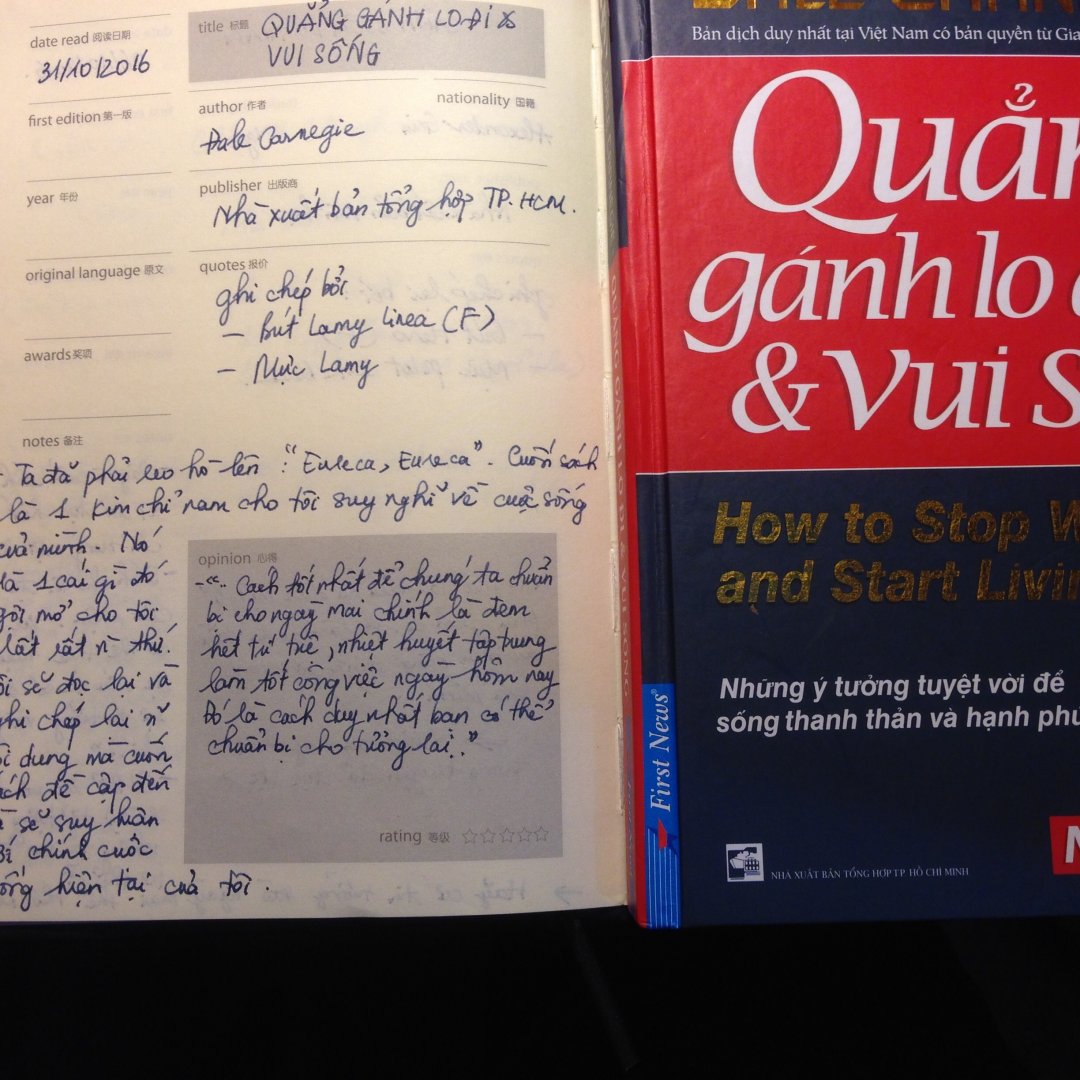 date read 阅读日期
31/10/2016
title 标题 QUẲNG GÁNH LO ĐI &
VUI SỐNG
first edition 第一版
author 作者
nationality 国籍
Dale Carnegie
year 年份
publisher 出版商
Nhà xuất bản tổng hợp TP. HCM.
original language 原文
quotes 报价
ghi chép bởi
- Bút Lamy Linea (F)
- Mực Lamy
awards 奖项
notes 备注
Ta đã phải reo hò lên : "Eureca, Eureca". Cuốn sách
là 1 kim chỉ nam cho tôi suy nghĩ về cuộc sống
của mình. Nó
là 1 cái gì đó
gợi mở cho tôi
rất rất thú.
sẽ đọc lại và
ghi chép lại
dung mà cuốn
đề cập đến
sẽ suy
chính cuộc
hiện tại của tôi.
opinion 心得
-"... Cách tốt nhất để chúng ta chuẩn
bị cho ngày mai chính là đem
hết trí tuệ, nhiệt huyết tập trung
làm tốt công việc ngày hôm nay
Đó là cách duy nhất bạn có thể
chuẩn bị cho tương lai."
rating 等级 ☆☆☆☆☆
Bản dịch duy nhất tại Việt Nam có bản quyền từ
Quẳn
gánh lo
& Vui
How to Stop
and Start Livin
Những ý tưởng tuyệt vời để
sống thanh thản và hạnh
First News®
NHÀ XUẤT BẢN TỔNG HỢP TP. HỒ CHÍ MINH